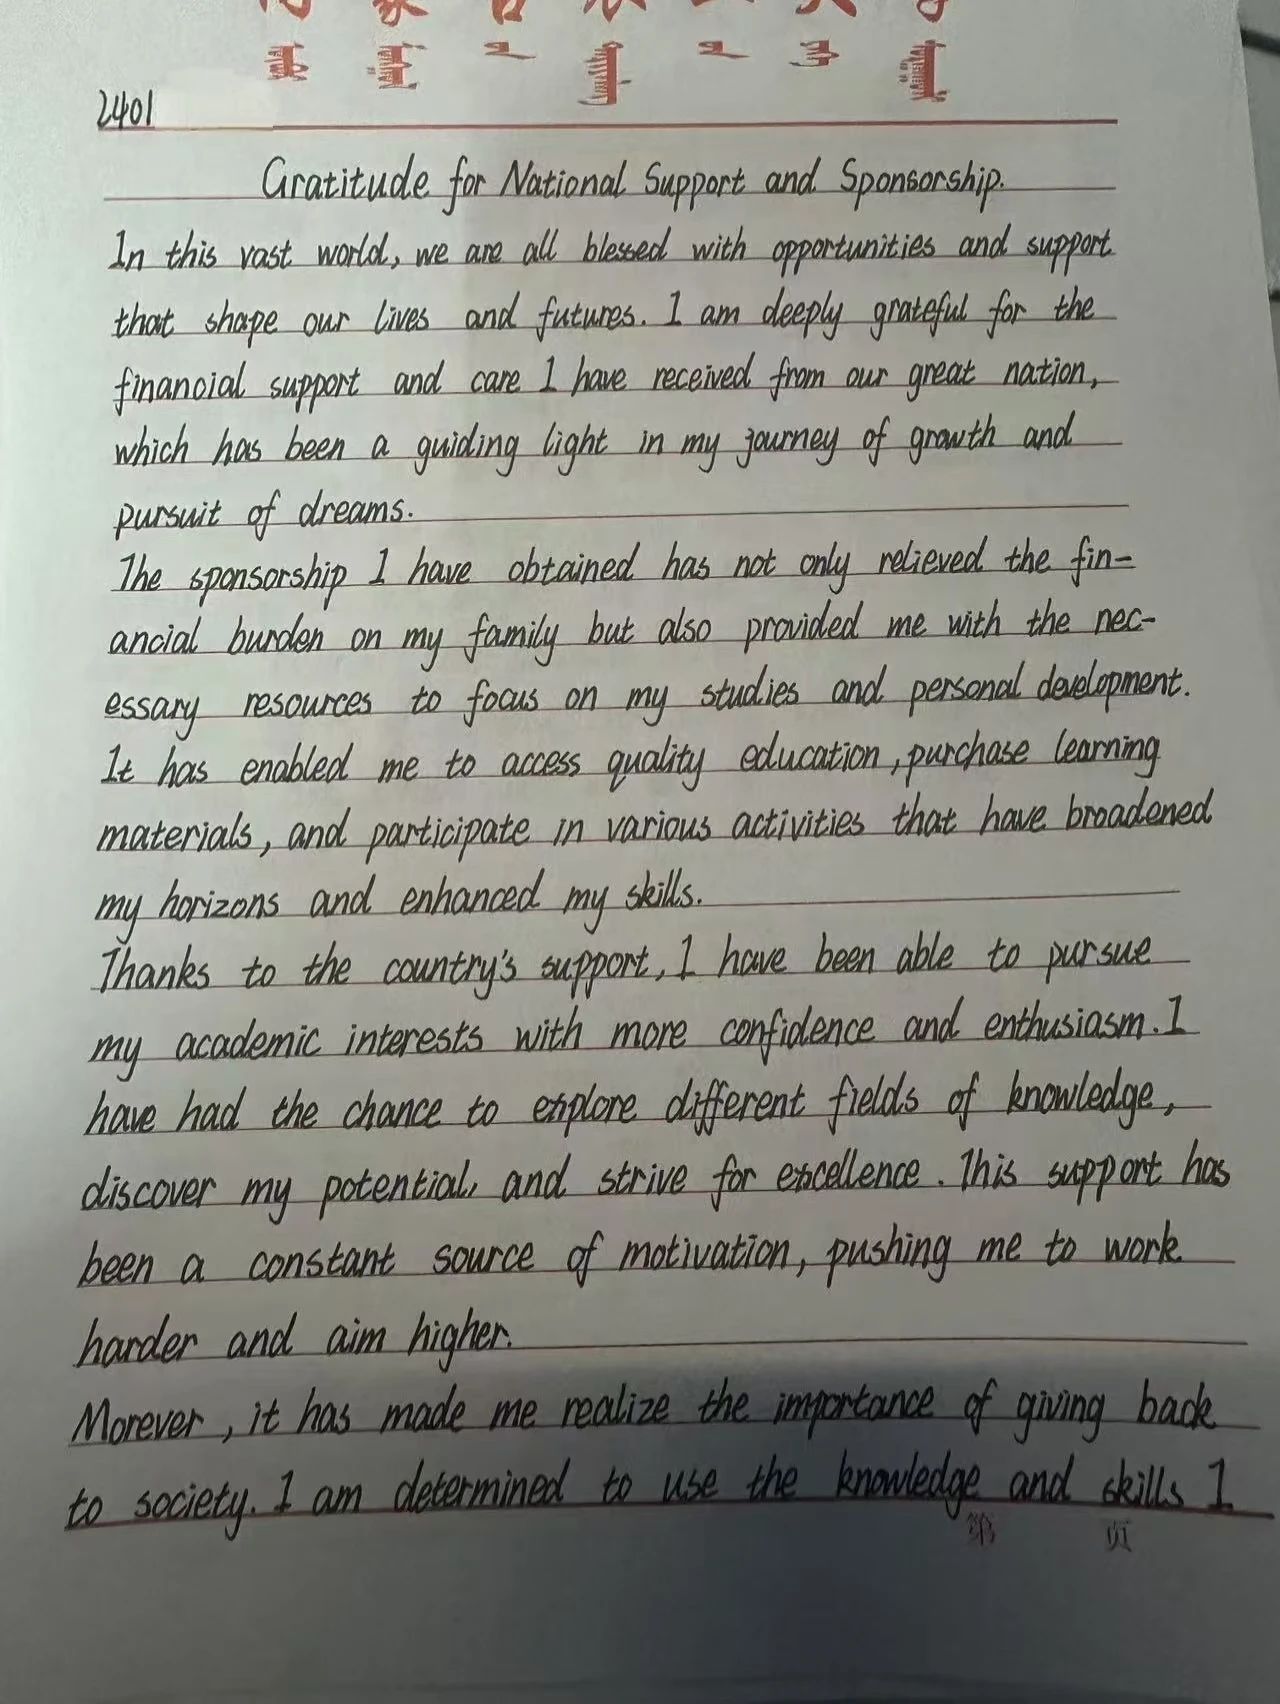 2401
Gratitude for National Support and Sponsorship.
In this vast world, we are all blessed with opportunities and support
that shape our lives and futures. I am deeply grateful for the
financial support and care I have received from our great nation,
which has been a guiding light in my journey of growth and
pursuit of dreams.
The sponsorship I have obtained has not only relieved the fin-
ancial burden on my family but also provided me with the nec-
essary resources to focus on my studies and personal development.
It has enabled me to access quality education, purchase learning
materials, and participate in various activities that have broadened
my horizons and enhanced my skills.
Thanks to the country's support, I have been able to pursue
my academic interests with more confidence and enthusiasm. I
have had the chance to explore different fields of knowledge,
discover my potential, and strive for excellence. This support has
been a constant source of motivation, pushing me to work
harder and aim higher.
Morever, it has made me realize the importance of giving back
to society. I am determined to use the knowledge and skills I
第 页